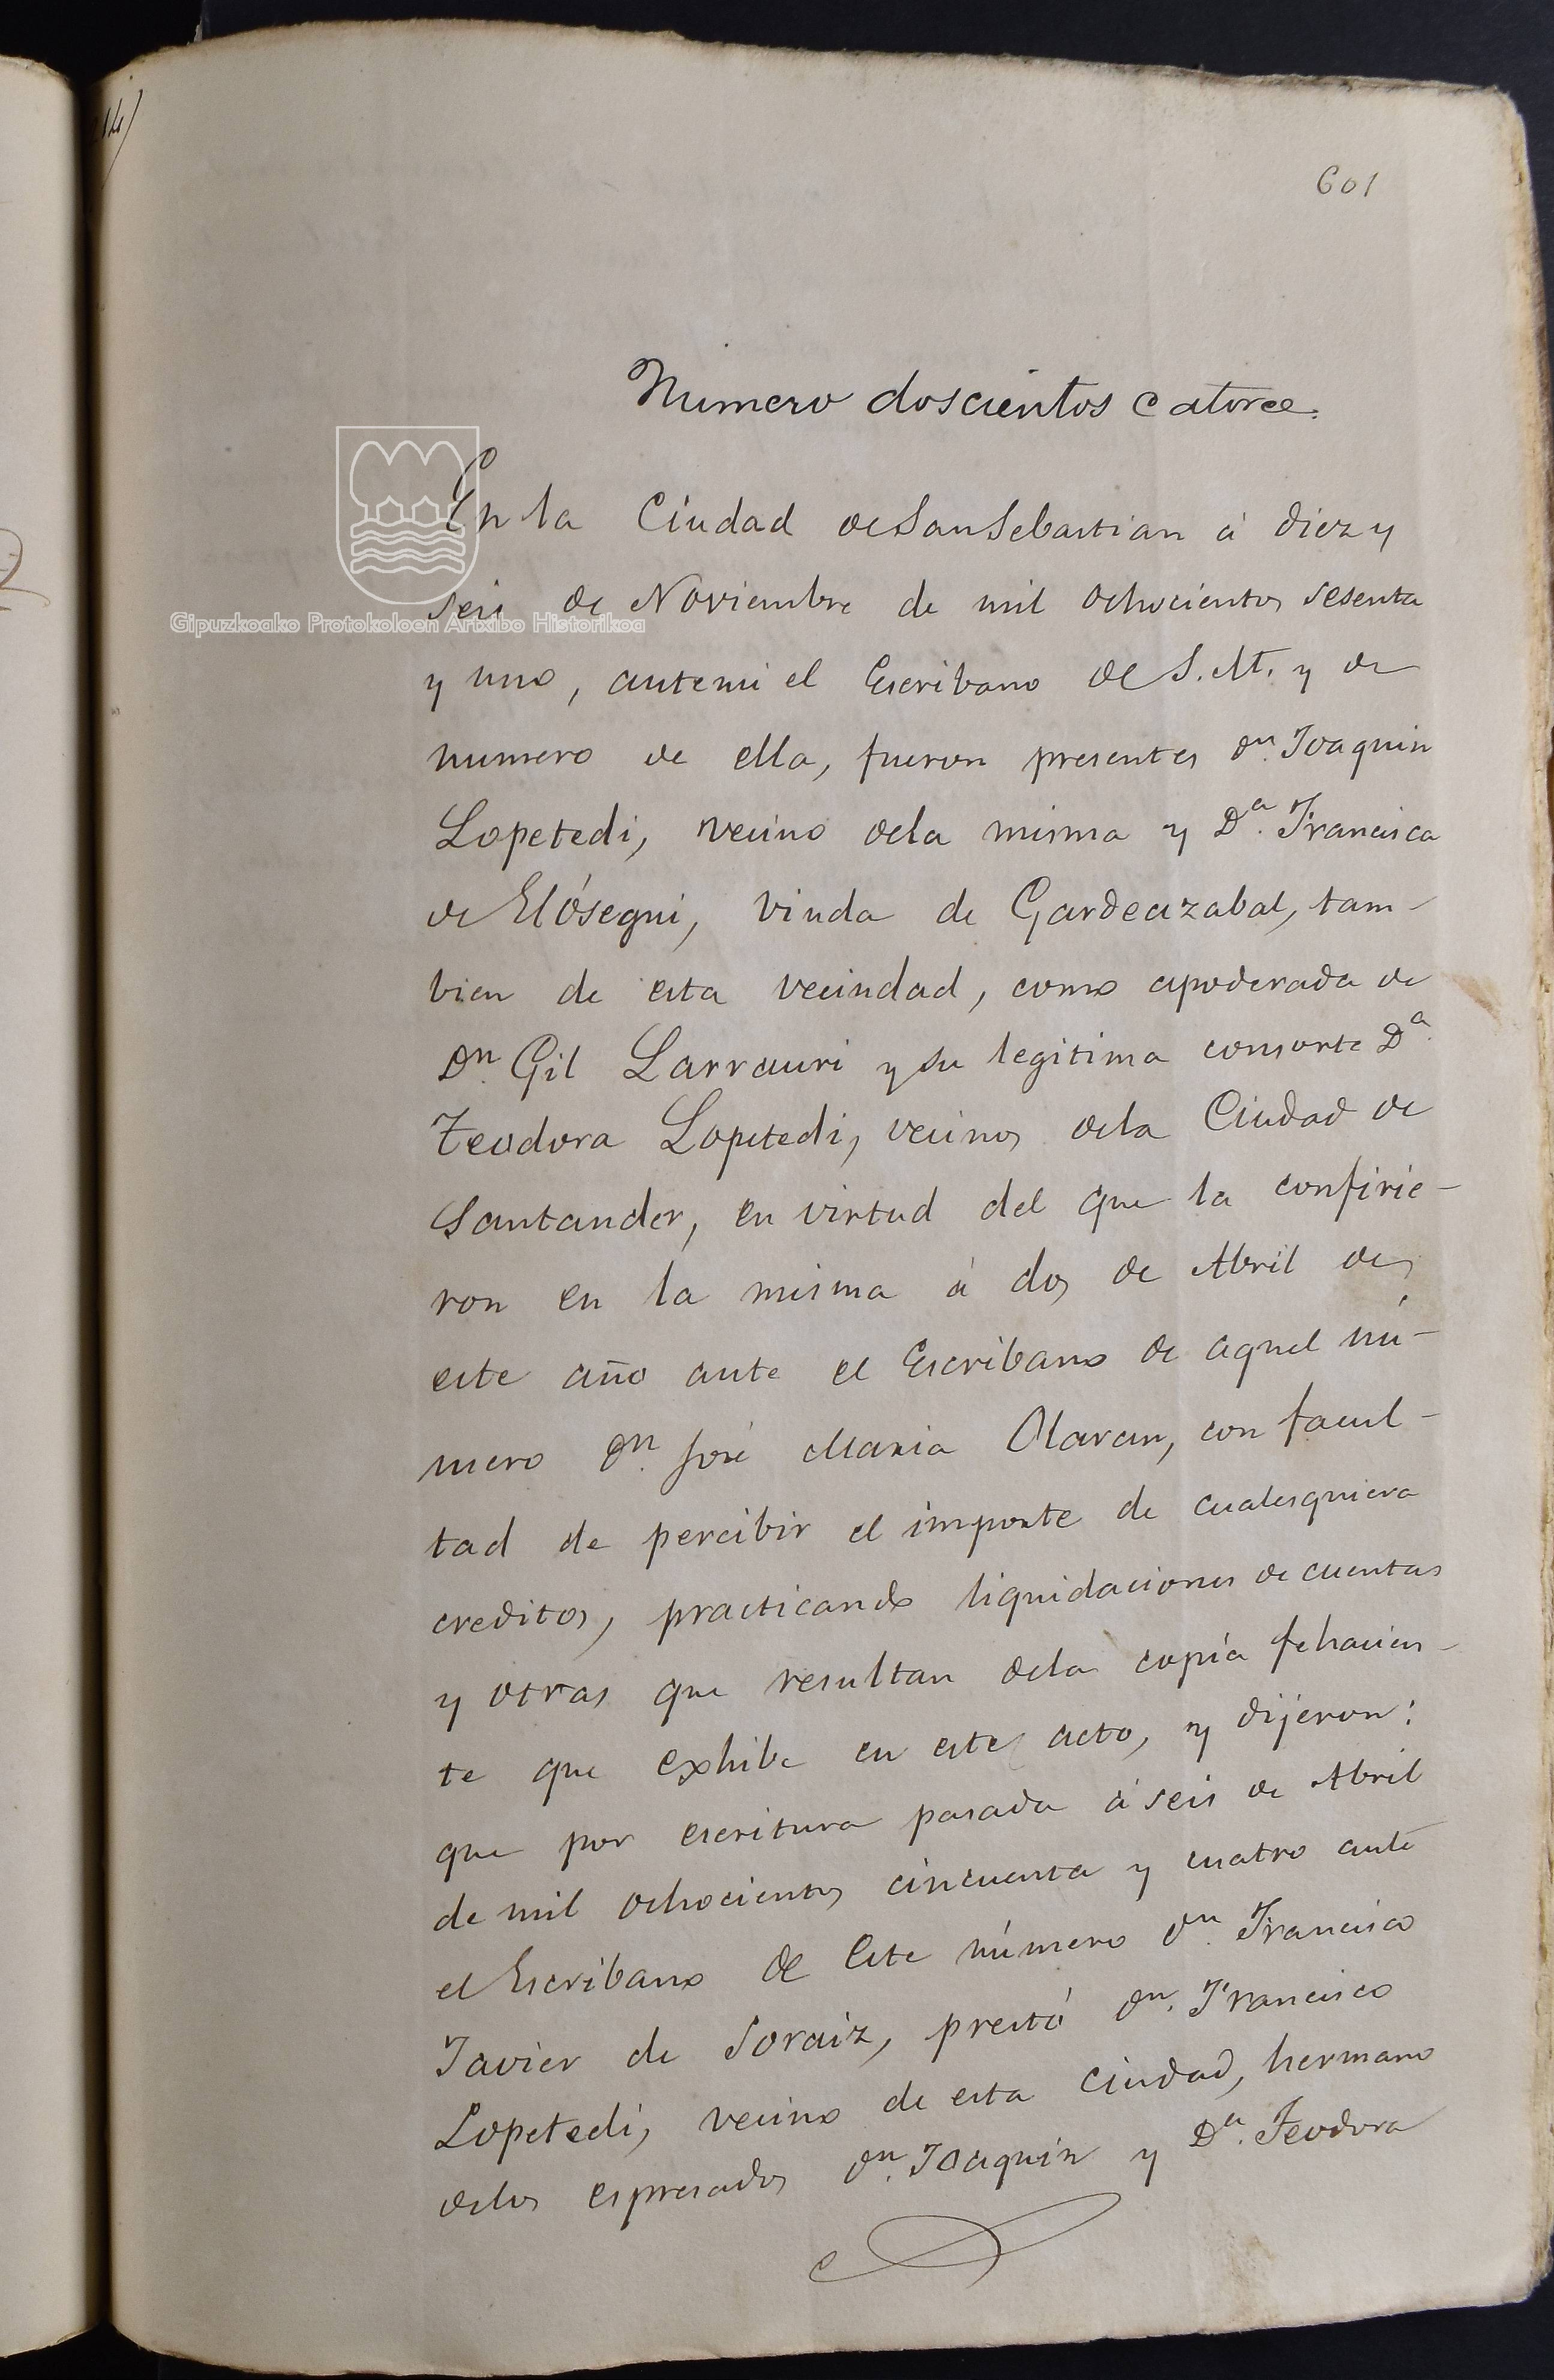 601
Numero doscientos catorce.
En la Ciudad de San Sebastian á diez y
seis de Noviembre de mil ochocientos sesenta
Gipuzkoako Protokoloen Artxibo Historikoa
y uno, ante mi el Escribano de S.M. y de
numero de ella, fueron presentes Dn. Joaquin
Lopetedi, vecino dela misma y Da. Francisca
de Elósegui, viuda de Gardeazabal, tam-
bien de esta vecindad, como apoderada de
Dn. Gil Larrauri y su legitima consorte Da.
Teodora Lopetedi, vecinos dela Ciudad de
Santander, en virtud del que la confirie-
ron en la misma á dos de Abril de
este año ante el Escribano de aquel nú-
mero Dn. José Maria Olaran, con facul-
tad de percibir el importe de cualesquiera
creditos, practicando liquidaciones de cuentas
y otras que resultan dela copia fehacien-
te que exhibe en este acto, y dijeron:
que por escritura pasada á seis de Abril
de mil ochocientos cincuenta y cuatro ante
el Escribano de este número Dn. Francisco
Javier de Soraiz, prestó Dn. Francisco
Lopetedi, vecino de esta ciudad, hermano
delos espresados Dn. Joaquin y Da. Teodora